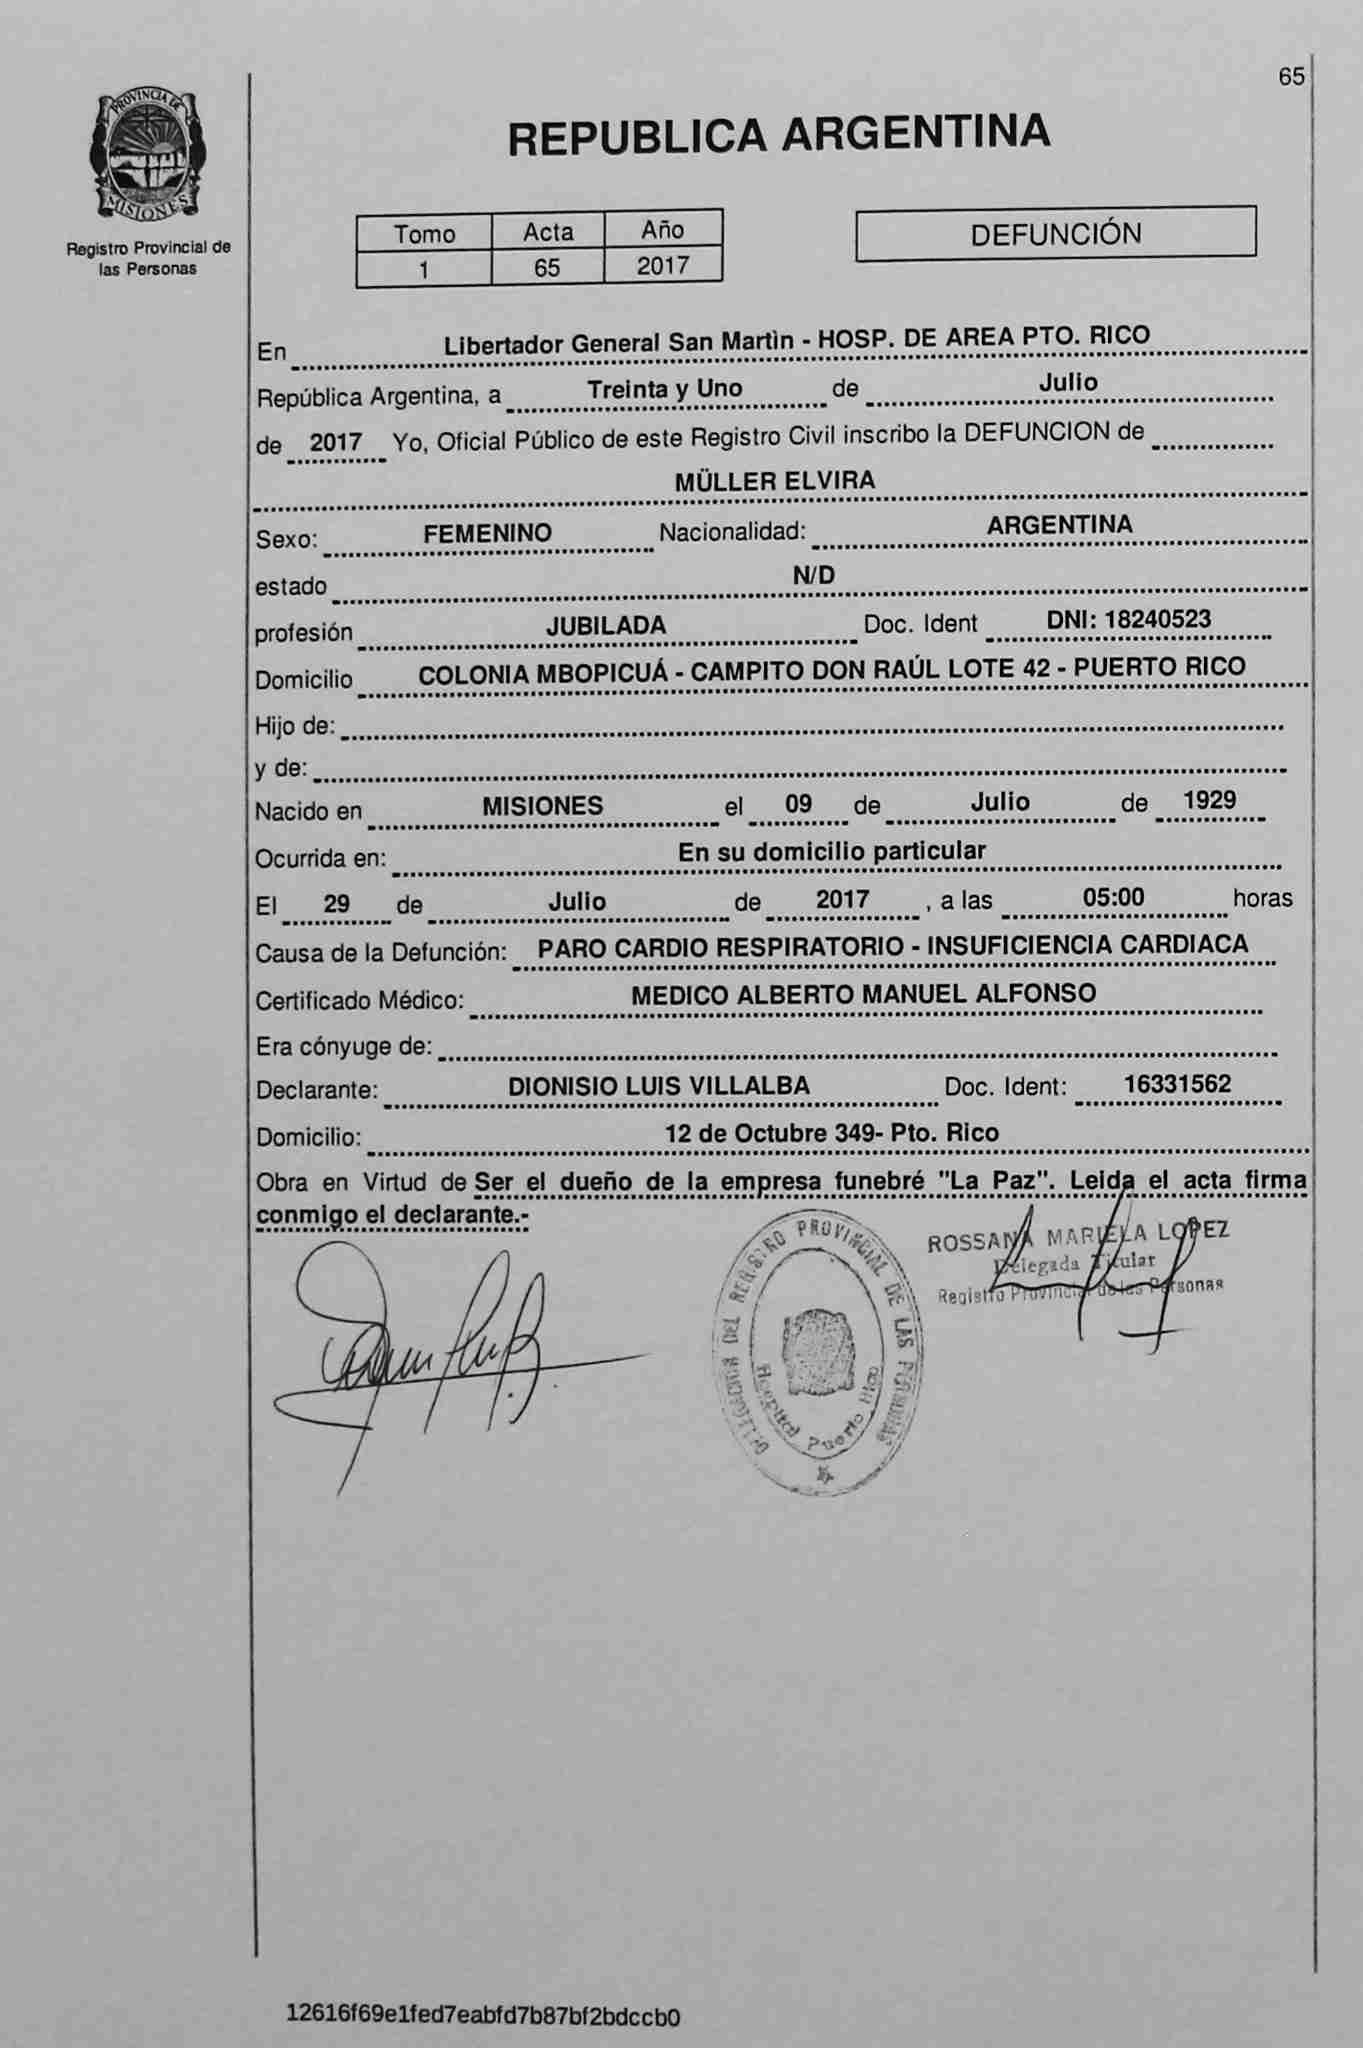 65
PROVINCIA DE
MISIONES
Registro Provincial de
las Personas
REPUBLICA ARGENTINA
Tomo Acta Año
1 65 2017
DEFUNCIÓN
En Libertador General San Martìn - HOSP. DE AREA PTO. RICO
República Argentina, a Treinta y Uno de Julio
de 2017 Yo, Oficial Público de este Registro Civil inscribo la DEFUNCION de
MÜLLER ELVIRA
Sexo: FEMENINO Nacionalidad: ARGENTINA
estado N/D
profesión JUBILADA Doc. Ident DNI: 18240523
Domicilio COLONIA MBOPICUÁ - CAMPITO DON RAÚL LOTE 42 - PUERTO RICO
Hijo de:
y de:
Nacido en MISIONES el 09 de Julio de 1929
Ocurrida en: En su domicilio particular
El 29 de Julio de 2017 , a las 05:00 horas
Causa de la Defunción: PARO CARDIO RESPIRATORIO - INSUFICIENCIA CARDIACA
Certificado Médico: MEDICO ALBERTO MANUEL ALFONSO
Era cónyuge de:
Declarante: DIONISIO LUIS VILLALBA Doc. Ident: 16331562
Domicilio: 12 de Octubre 349- Pto. Rico
Obra en Virtud de Ser el dueño de la empresa funebré "La Paz". Leida el acta firma
conmigo el declarante.-
DELEGACION DEL REGISTRO PROVINCIAL DE LAS PERSONAS
Hospital Puerto Rico
ROSSANA MARIELA LOPEZ
Delegada Titular
Registro Provincial de las Personas
12616f69e1fed7eabfd7b87bf2bdccb0